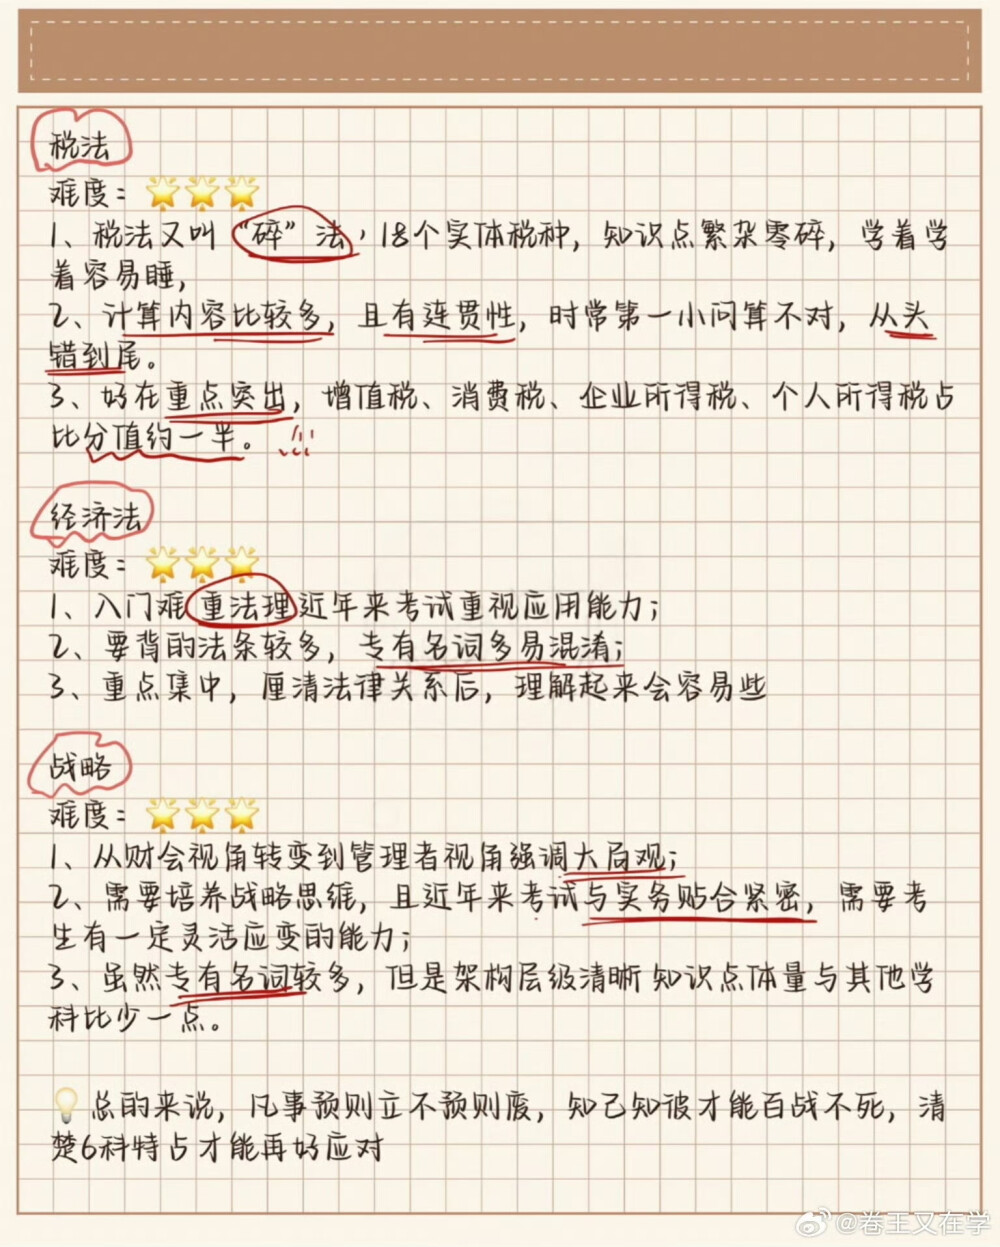 税法
难度：🌟🌟🌟
1、税法又叫“碎”法，18个实体税种，知识点繁杂零碎，学着学
着容易睡，
2、计算内容比较多，且有连贯性，时常第一小问算不对，从头
错到尾。
3、好在重点突出，增值税、消费税、企业所得税、个人所得税占
比分值约一半。
经济法
难度：🌟🌟🌟
1、入门难重法理近年来考试重视应用能力；
2、要背的法条较多，专有名词多易混淆；
3、重点集中，厘清法律关系后，理解起来会容易些
战略
难度：🌟🌟🌟
1、从财会视角转变到管理者视角强调大局观；
2、需要培养战略思维，且近年来考试与实务贴合紧密，需要考
生有一定灵活应变的能力；
3、虽然专有名词较多，但是架构层级清晰知识点体量与其他学
科比少一点。
💡总的来说，凡事预则立不预则废，知己知彼才能百战不死，清
楚6科特占才能再好应对
@卷王又在学